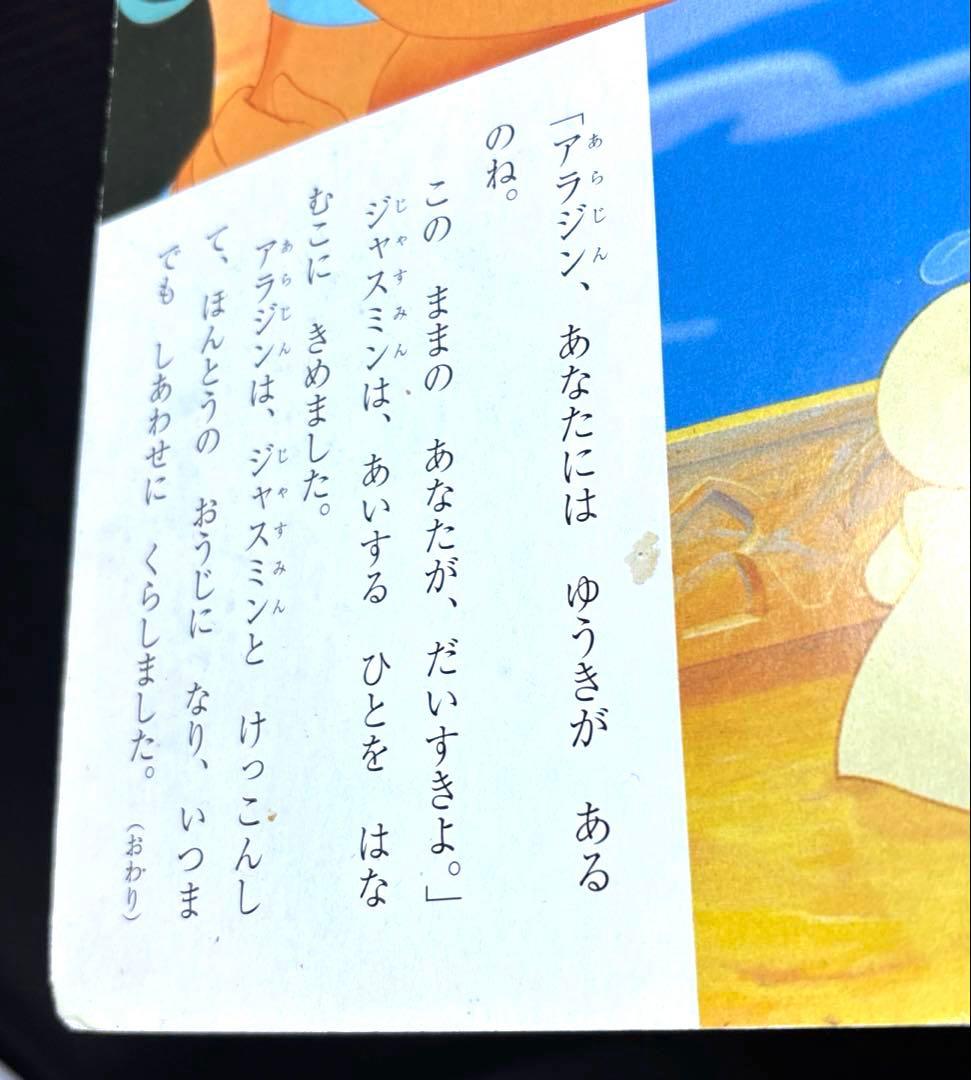 「アラジン、 あなたには ゆうきが ある
のね。
この ままの あなたが、だいすきよ。」
ジャスミンは、あいする ひとを はな
むこに きめました。
アラジンは、ジャスミンと けっこんし
て、ほんとうの おうじに なり、いつま
でも しあわせに くらしました。 (おわり)